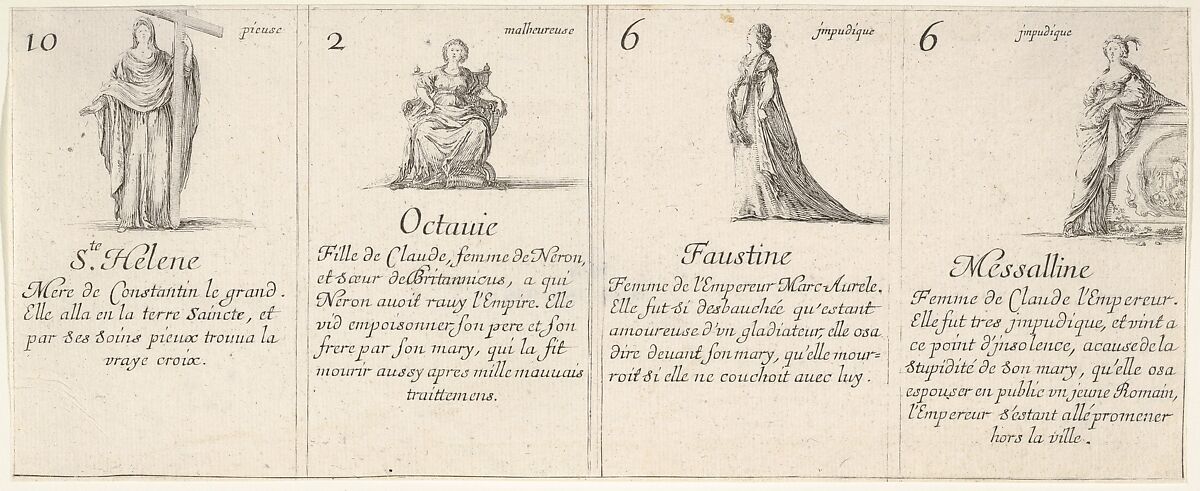 10
pieuse
Ste. Helene
Mere de Constantin le grand.
Elle alla en la terre Saincte, et
par ses soins pieux trouua la
vraye croix.
2
malheureuse
Octauie
Fille de Claude, femme de Neron,
et sœur de Britannicus, a qui
Neron auoit rauy l'Empire. Elle
vid empoisonner son pere et son
frere par son mary, qui la fit
mourir aussy apres mille mauuais
traittemens.
6
jmpudique
Faustine
Femme de l'Empereur Marc-Aurele.
Elle fut si desbauchée qu'estant
amoureuse d'vn gladiateur, elle osa
dire deuant son mary, qu'elle mour=
roit si elle ne couchoit auec luy.
6
jmpudique
Messalline
Femme de Claude l'Empereur.
Elle fut tres jmpudique, et vint a
ce point d'jnsolence, a cause de la
stupidité de son mary, qu'elle osa
espouser en public vn jeune Romain,
l'Empereur s'estant allé promener
hors la ville.